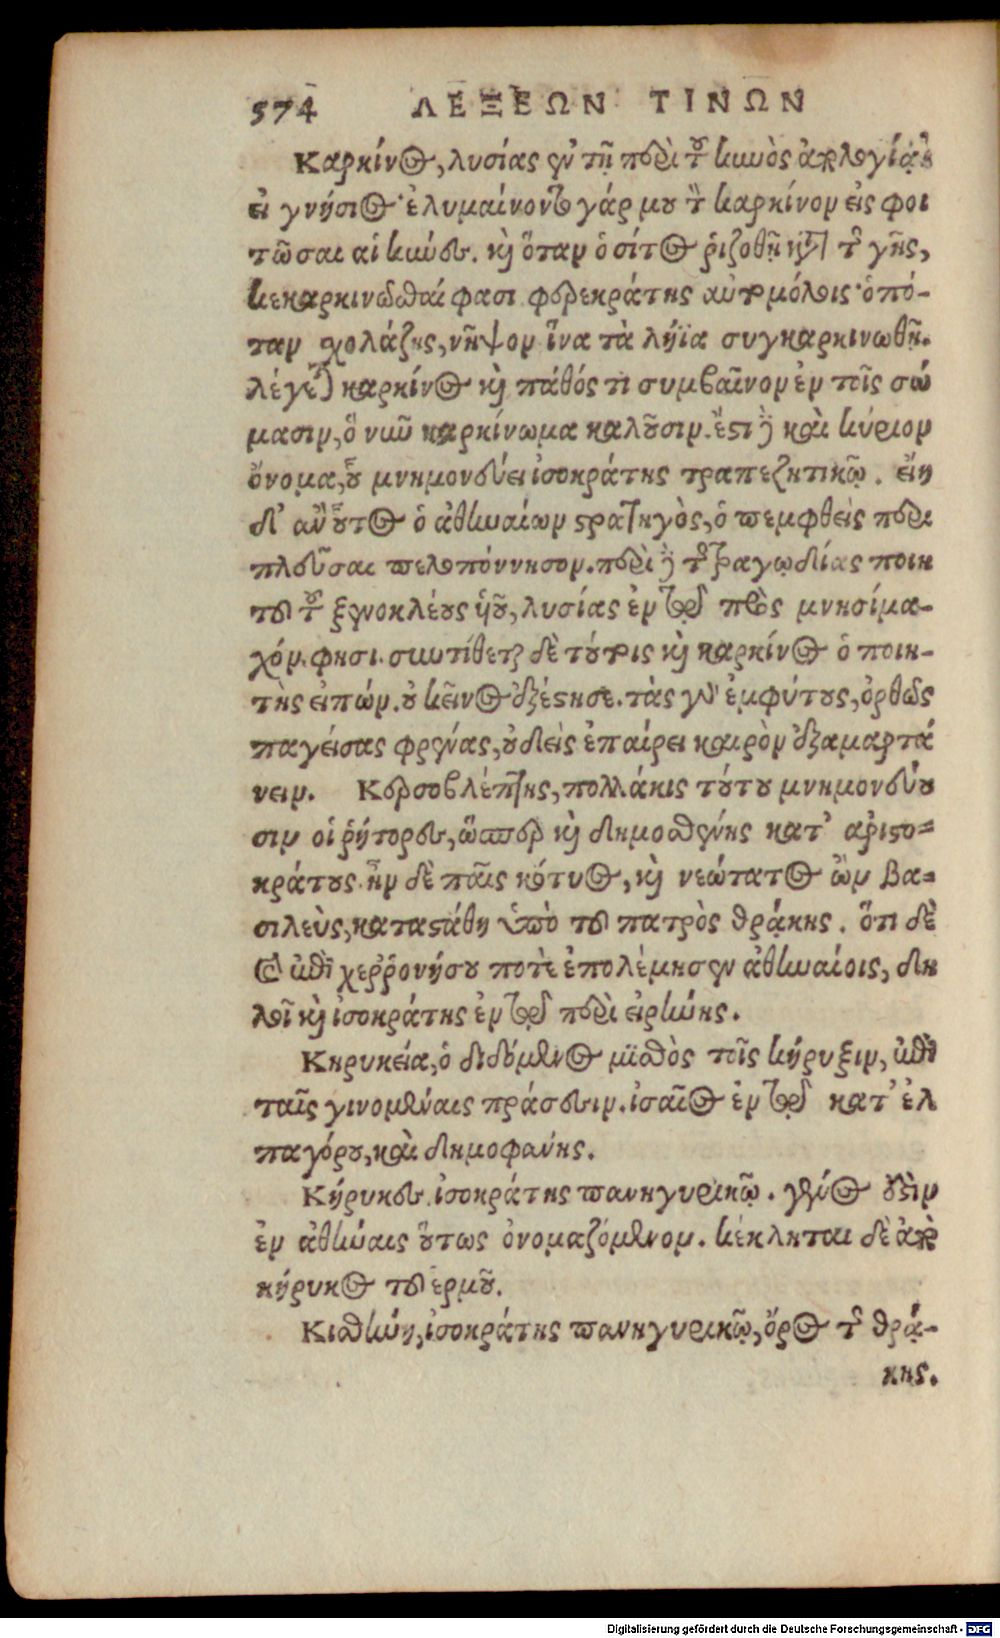 574 ΛΕΞΕΩΝ ΤΙΝΩΝ
Καρκίνος, λυσίας ἐν τῇ περὶ τοῦ κυνὸς ἀπολογίᾳ,
εἰ γνήσιος· ἐλυμαίνοντο γάρ μου τὸν καρκίνον εἰς φοι
τῶσαι αἱ κύνες. καὶ ὅταν ὁ σίτος ῥιζοθῇ τῆς γῆς,
κεκαρκινῶσθαί φασι. φερεκράτης αὐτομόλοις· ὁπό-
ταν σχολάζῃς, νῆψον ἵνα τὰ λήϊα συγκαρκινωθῇ.
λέγεται καρκίνος καὶ πάθός τι συμβαῖνον ἐν τοῖς σώ
μασιν, ὃ νῦν καρκίνωμα καλοῦσιν. ἔστι δὲ καὶ κύριον
ὄνομα, οὗ μνημονεύει ἰσοκράτης τραπεζητικῷ. εἴη
δ' ἂν οὗτος ὁ ἀθηναίων στρατηγὸς, ὁ πεμφθεὶς περι
πλεῦσαι πελοπόννησον. περὶ δὲ τῆς τραγῳδίας ποιη
τοῦ τοῦ ξενοκλέους υἱοῦ, λυσίας ἐν τῷ πρὸς μνησίμα-
χόν. φησι. συντίθεται δὲ τούτοις καὶ καρκίνος ὁ ποιη-
τὴς εἰπών. οὐ κεῖνος ἐξέστησε. τὰς γὰρ ἐμφύτους, ὀρθῶς
παγείσας φρένας, οὐδεὶς ἐπαίρει καιρὸν ἐξαμαρτά
νειν. Κερσοβλέπτης, πολλάκις τούτου μνημονεύου
σιν οἱ ῥήτορες, ὥσπερ καὶ δημοσθένης κατ' ἀριστο=
κράτους. ἦν δὲ παῖς κότυος, καὶ νεώτατος ὢν βα=
σιλεὺς, κατασάθη ὑπὸ τοῦ πατρὸς θρᾴκης. ὅτι δὲ
καὶ ἐπὶ χερρονήσου ποτὲ ἐπολέμησεν ἀθηναίοις, δη
λοῖ καὶ ἰσοκράτης ἐν τῷ περὶ εἰρήνης.
Κηρυκεία, ὁ διδόμενος μισθὸς τοῖς κήρυξιν, ἐπὶ
ταῖς γινομέναις πράσεσιν. ἰσαῖος ἐν τῷ κατ' ἐλ
παγόρου, καὶ δημοφάνης.
Κήρυκες. ἰσοκράτης πανηγυρικῷ. γένος ἐστὶν
ἐν ἀθήναις οὕτως ὀνομαζόμενον. κέκληται δὲ ἀπὸ
κήρυκος τοῦ ἑρμοῦ.
Κισθήνη, ἰσοκράτης πανηγυρικῷ, ὄρος τῆς θρᾴ-
κης.
Digitalisierung gefördert durch die Deutsche Forschungsgemeinschaft - DFG